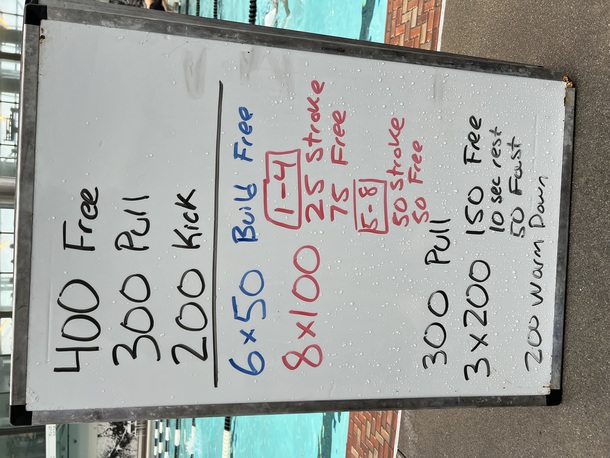 400 Free
300 Pull
200 Kick
6x50 Build Free
8x100 1-4
25 Stroke
75 Free
5-8
50 Stroke
50 Free
300 Pull
3x200 150 Free
10 sec rest
50 Fast
200 Warm Down